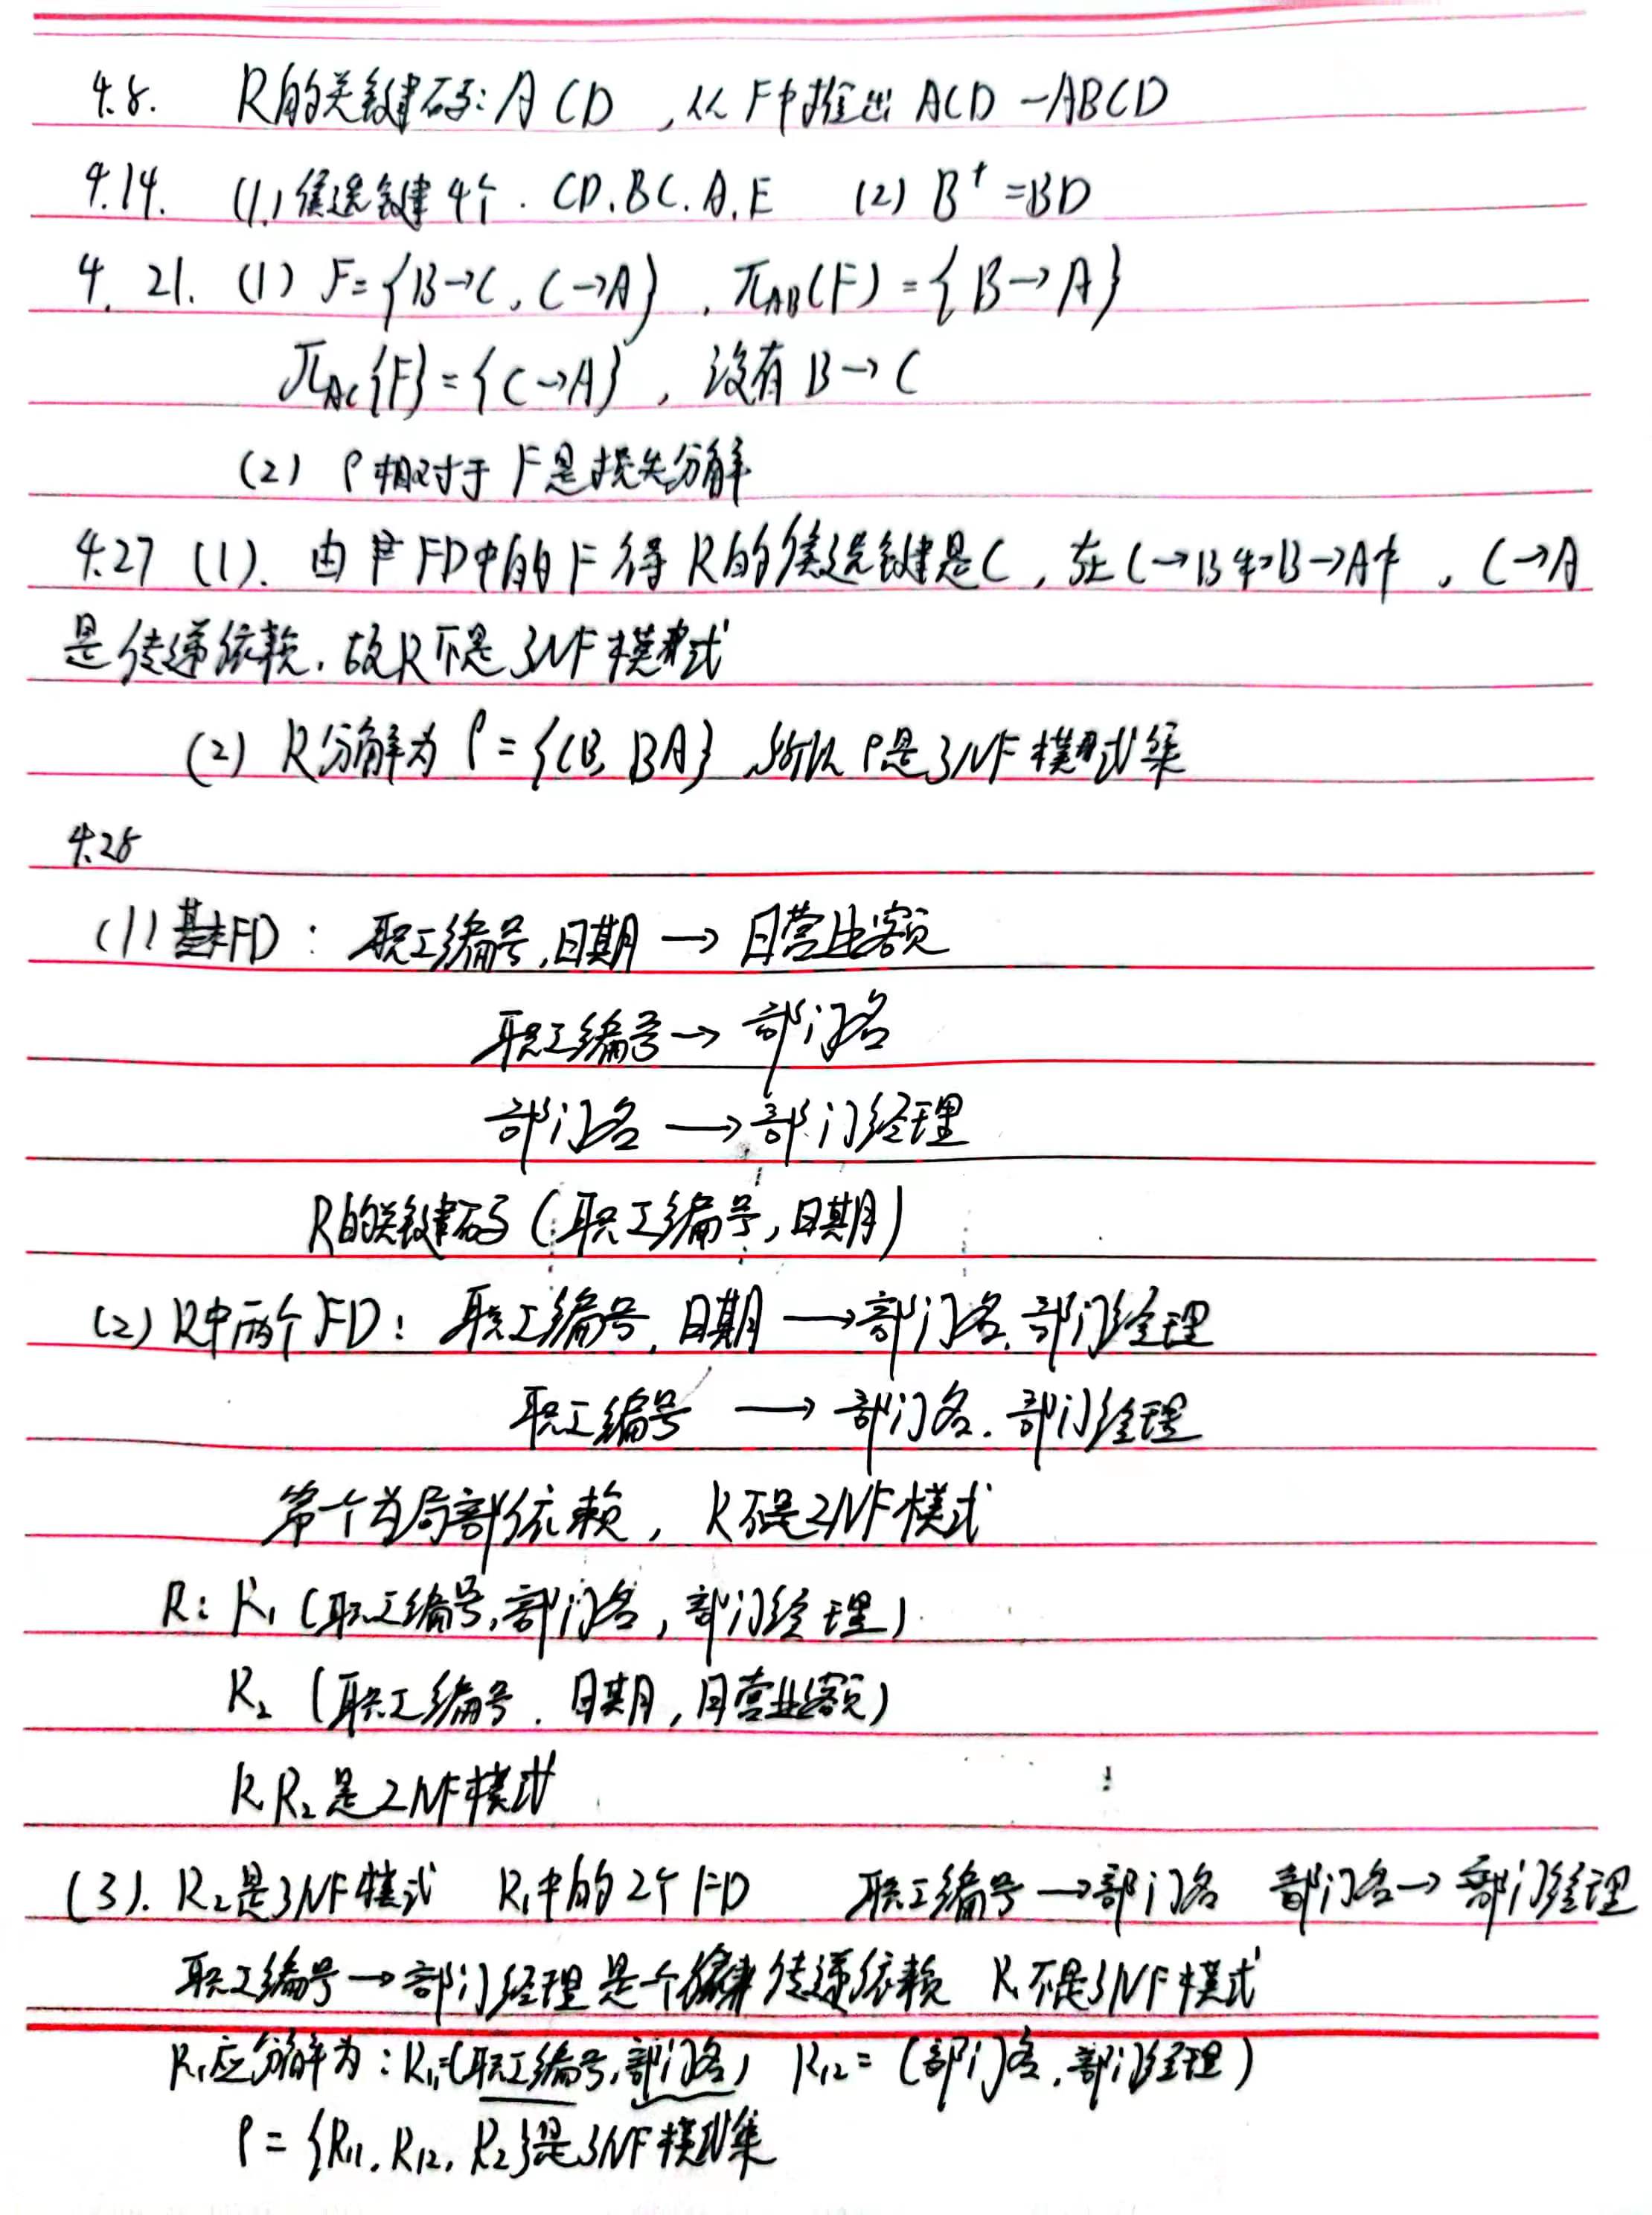 4.8. R的关键码：ACD，从F中推出 ACD—ABCD
4.14. (1)候选键4个. CD.BC.A.E (2) B⁺=BD
4.21. (1) F={B→C, C→A}, π_AB(F)={B→A}
π_AC{F}={C→A}, 没有B→C
(2) ρ相对于F是损失分解
4.27 (1). 由 FD中的F得R的候选键是C, 在C→B和B→A中, C→A
是传递依赖, 故R不是3NF模式
(2) R分解为 ρ={CB, BA} 所以ρ是3NF模式集
4.28
(1) 基本FD: 职工编号,日期 → 日营业额
职工编号 → 部门名
部门名 → 部门经理
R的关键码 (职工编号,日期)
(2) R中两个FD: 职工编号,日期 → 部门名,部门经理
职工编号 → 部门名.部门经理
第一个为局部依赖, R不是2NF模式
R: R₁ (职工编号,部门名,部门经理)
R₂ (职工编号.日期,日营业额)
R₁R₂是2NF模式
(3). R₂是3NF模式 R₁中的2个FD 职工编号→部门名 部门名→部门经理
职工编号→部门经理是一个传递依赖 R₁不是3NF模式
R₁应分解为: R₁₁=(职工编号,部门名) R₁₂=(部门名,部门经理)
ρ={R₁₁, R₁₂, R₂}是3NF模式集